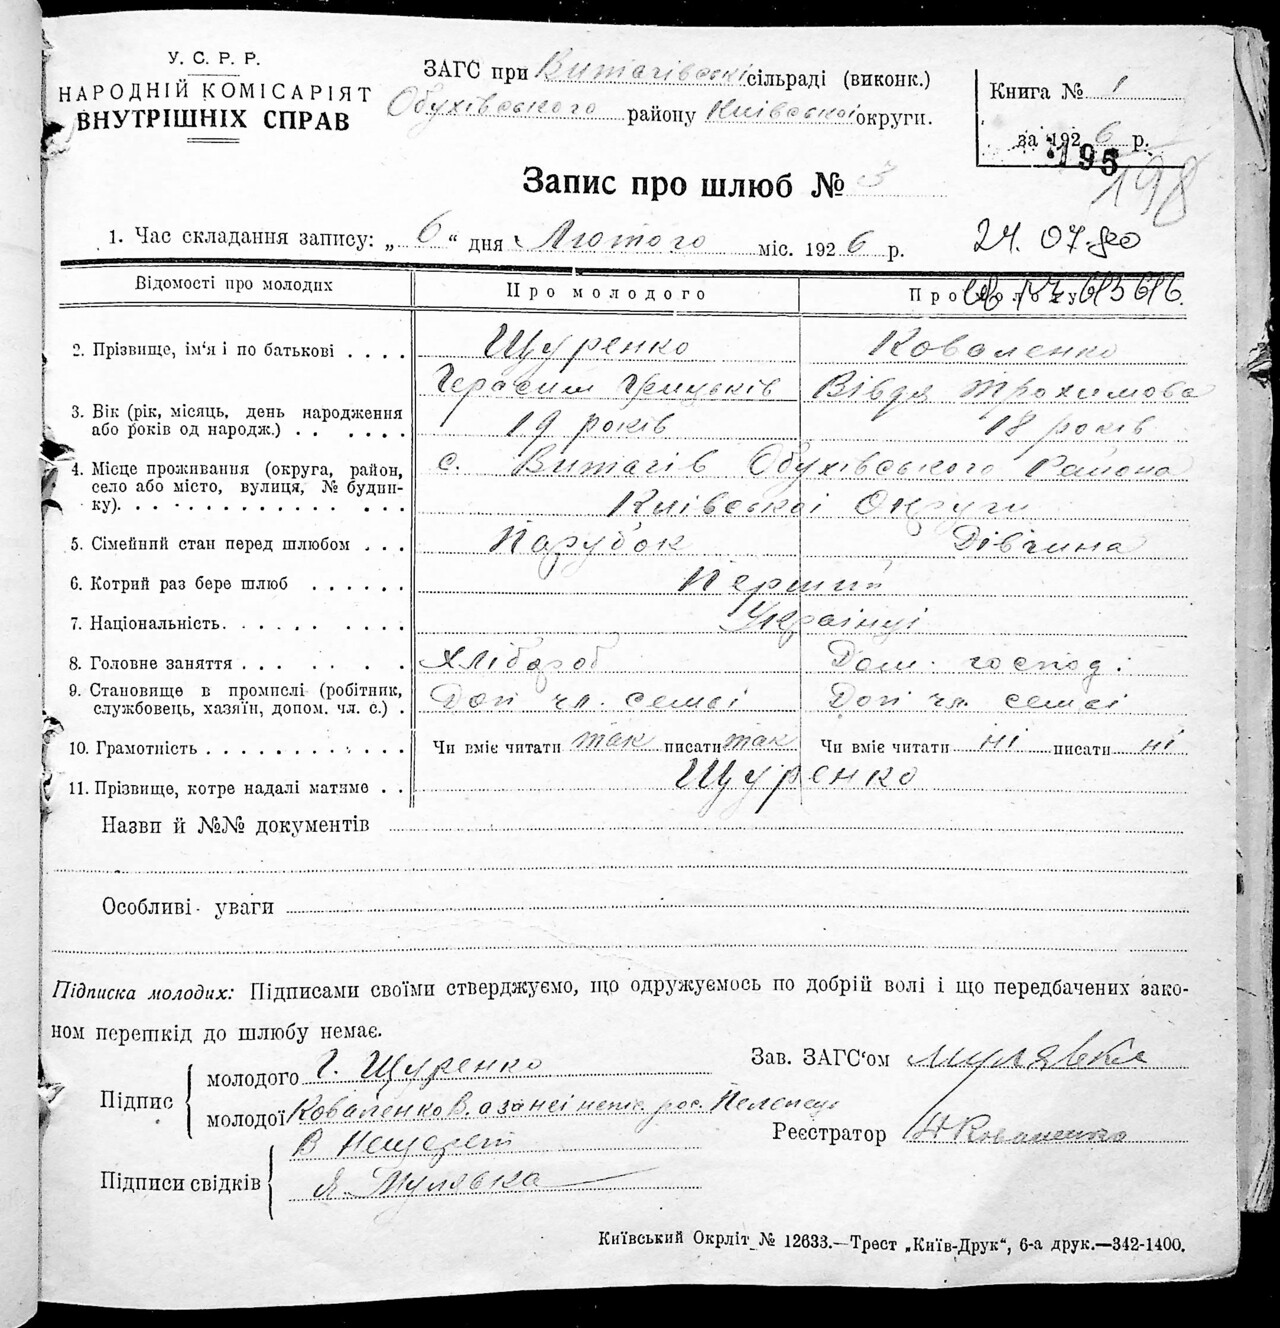 У. С. Р. Р.
НАРОДНІЙ КОМІСАРІЯТ
ВНУТРІШНІХ СПРАВ
ЗАГС при Витачівській сільраді (виконк.)
Обухівського району Київської округи.
Книга № 1
за 1926 р.
195
198
Запис про шлюб № 3
1. Час складання запису: „ 6 “ дня Лютого міс. 1926 р.
24. 07.
Відомості про молодих Про молодого Про молоду
2. Прізвище, ім‘я і по батькові . . . . Щуренко Коваленко
Герасим Грицьків Вівдя Трохимова
3. Вік (рік, місяць, день народження
або років од народж.) . . . . . . 19 років 18 років
4. Місце проживання (округа, район,
село або місто, вулиця, № будин-
ку). с. Витачів Обухівського Района
Київської Округи
5. Сімейний стан перед шлюбом . . . Парубок Дівчина
6. Котрий раз бере шлюб . . . . . . Перший
7. Національність. Українці
8. Головне заняття . . . Хлібороб Дом. господ.
9. Становище в промислі (робітник,
службовець, хазяїн, допом. чл. с.) . Доп чл. семьї Доп чл. семьї
10. Грамотність Чи вміє читати так писати так Чи вміє читати ні писати ні
11. Прізвище, котре надалі матиме . . Щуренко
Назви й №№ документів
Особливі уваги
Підписка молодих: Підписами своїми стверджуємо, що одружуємось по добрій волі і що передбачених зако-
ном перешкід до шлюбу немає.
Підпис
молодого Г. Щуренко
молодої Коваленко В. а за неї
Зав. ЗАГС‘ом Мулявка
Реєстратор Коваленко
Підписи свідків
В
Я Мулявка
Київський Окрліт № 12633.—Трест „Київ-Друк“, 6-а друк.—342-1400.